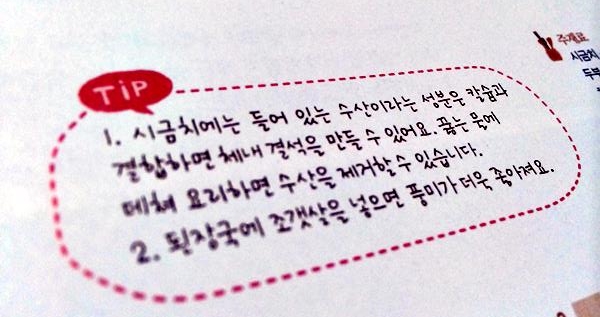 TiP
1. 시금치에는 들어 있는 수산이라는 성분은 칼슘과
결합하면 체내 결석을 만들 수 있어요. 끓는 물에
데쳐 요리하면 수산을 제거할 수 있습니다.
2. 된장국에 조갯살을 넣으면 풍미가 더욱 좋아져요.
주재료
시금치
두부